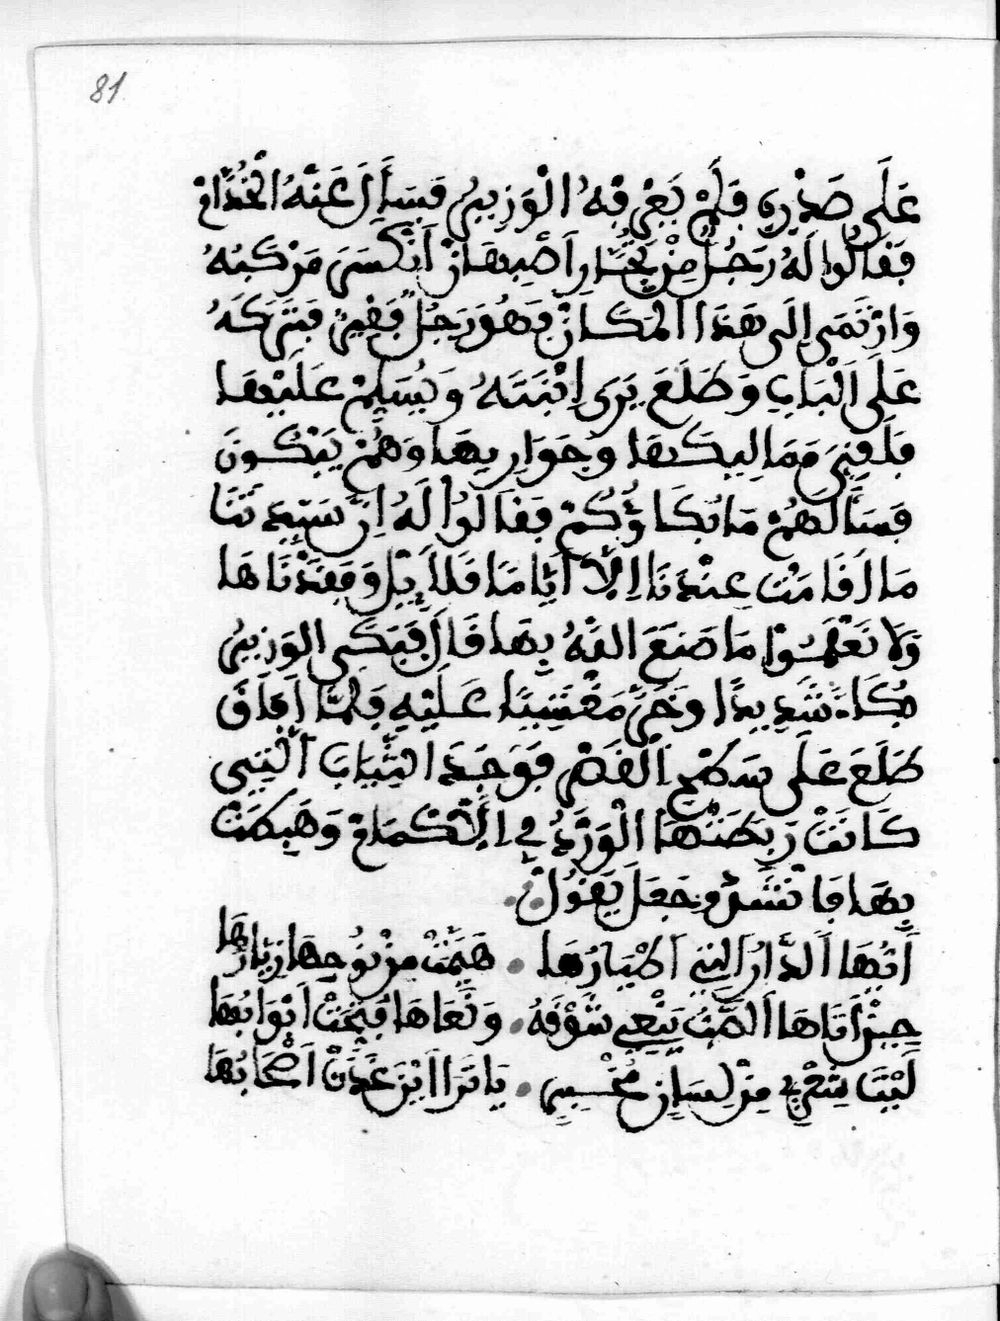 81
عَلَى صَدْرِهِ فَلَمْ يَعْرِفْهُ الْوَزِيرُ فَسَأَلَ عَنْهُ الْخُدَّامْ
فَقَالُوا لَهُ رَجُلٌ مِنْ تُجَّارِ اَصْبِهَانْ اَنْكَسَرَ مَرْكَبُهُ
وَارْتَمَى إِلَى هَذَا الْمَكَانْ وَهُوَ رَجُلٌ فَقِيرٌ فَتَرَكَهُ
عَلَى الْبَابِ وَطَلَعَ يَرَى اِبْنَتَهُ وَيُسَلِّمْ عَلَيْهَا
فَلَقِيَ مَمَالِيكَهَا وَجَوَارِيهَا وَهُمْ يَبْكُونَ
فَسَأَلَهُمْ مَا بُكَاؤُكُمْ فَقَالُوا لَهُ اِنَّ سَيِّدَتَنَا
مَا اَقَامَتْ عِنْدَنَا اِلَّا اَيَّامَا قَلَايِلْ وَفَقَدْنَاهَا
وَلَا نَعْلَمُوا مَا صَنَعَ اللَّهُ بِهَا قَالَ فَبَكَى الوَزِيرُ
بُكَاءً شَدِيدًا وَخَرَّ مَغْشِيًّا عَلَيْهِ فَلَمَّا اَفَاقَ
طَلَعَ عَلَى سَطْحِ الْقَصْرِ فَوَجَدَ الثِّيَابَ الَّتِي
كَانَتْ رَبَطَتْهَا الْوَرْدُ فِي الْاَكْمَامْ وَهَبَطَتْ
بِهَا فَانْشَدَ وَجَعَلَ يَقُولْ
اَيُّهَا الدَّارُ الَّتِي اَطْيَارُهَا . هَيَّمَتْ مِنْ نَوْحِهَا زُوَّارَهَا
حِينَ اَتَاهَا الصَّبُّ يَبْغِي شَوْقَهُ . وَنَعَاهَا فُتِحَتْ اَبْوَابُهَا
لَيْتَ شِعْرِي مِنْ لِسَانٍ مُخْبِرٍ . يَا تَرَا اَيْنَ غَدَتْ اَصْحَابُهَا